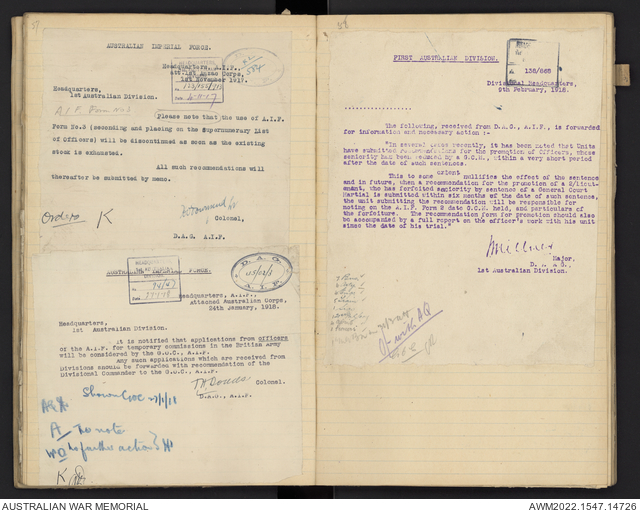 57
AUSTRALIAN IMPERIAL FORCE.
Headquarters, A.I.F.,
att 1st Anzac Corps,
1st November 1917.
Headquarters,
1st Australian Division.
A.I.F. Form No 3
Please note that the use of A.I.F.
Form No.3 (seconding and placing on the Supernumerary List
of Officers) will be discontinued as soon as the existing
stock is exhausted.
All such recommendations will
thereafter be submitted by memo.
Colonel,
D.A.G. A.I.F.
Orders K
AUSTRALIAN IMPERIAL FORCE.
D.A.G.
A.I.F.
Headquarters, A.I.F.,
Attached Australian Corps,
24th January, 1918.
Headquarters,
1st Australian Division.
It is notified that applications from officers
of the A.I.F. for temporary commissions in the British Army
will be considered by the G.O.C., A.I.F.
Any such applications which are received from
Divisions should be forwarded with recommendation of the
Divisional Commander to the G.O.C., A.I.F.
T H Dodds Colonel.
D.A.G., A.I.F.
Shown GOC
A to note
no further action
K
58
FIRST AUSTRALIAN DIVISION.
A
138/868
Divisional Headquarters,
9th February, 1918.
The following, received from D.A.G., A.I.F., is forwarded
for information and necessary action :-
"In several cases recently, it has been noted that Units
have submitted recommendations for the promotion of Officers, whose
seniority had been reduced by a G.C.M., within a very short period
after the date of such sentences.
extent
This to some nullifies the effect of the sentence
and in future, when a recommendation for the promotion of a 2/Lieut-
enant, who has forfeited seniority by sentence of a General Court
Martial is submitted within six months of the date of such sentence,
the unit submitting the recommendation will be responsible for
noting on the A.I.F. Form 2 date G.C.M. held, and particulars of
the forfeiture. The recommendation form for promotion should also
be accompanied by a full report on the officer's work with his unit
since the date of his trial."
Major,
1st Australian Division.
AUSTRALIAN WAR MEMORIAL
AWM2022.1547.14726